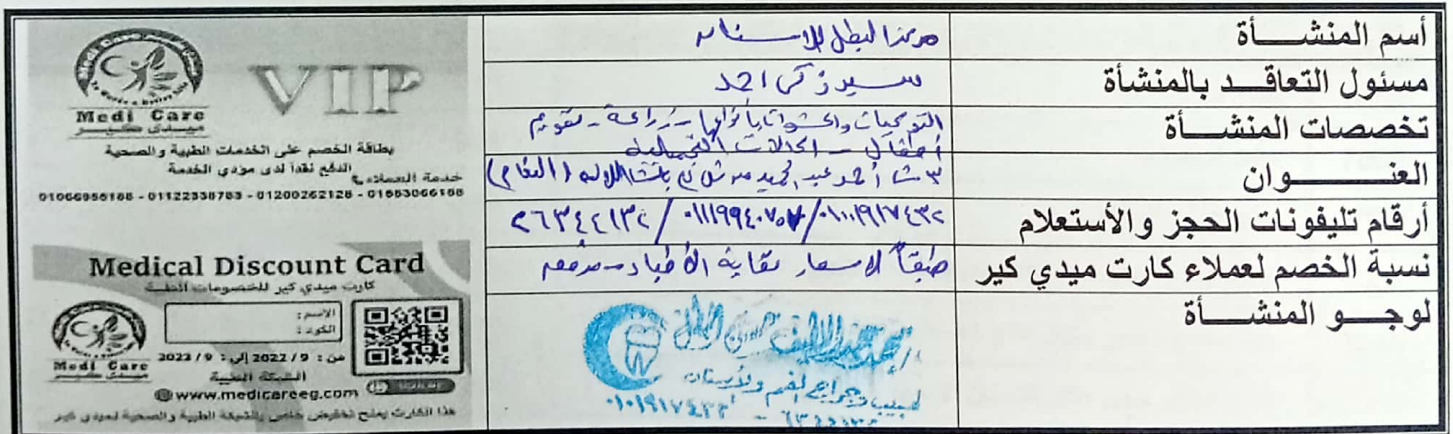 أسم المنشأة
مركز البطل للاسنان
مسئول التعاقد بالمنشأة
سيد زكى احمد
تخصصات المنشأة
التركيبات والحشوات بأنواعها - زراعة - تقويم
أطفال - الحالات التجميلية
العنوان
٣ ش أحمد عبد الحميد من ش
أرقام تليفونات الحجز والأستعلام
٠١٠١٩١٧٤٣٢ / ٢٦٣٤٤٢١٣٢
نسبة الخصم لعملاء كارت ميدي كير
طبقاً لاسعار نقابة الأطباء - مرفقه
لوجو المنشأة
طبيب وجراح الفم والأسنان
٠١٠١٩١٧٤٣٢
Medi Care
ميدى كير
VIP
بطاقة الخصم على الخدمات الطبية والصحية
الدفع نقداً لدى مؤدي الخدمة
خدمة العملاء
01122338783 - 01200262128
Medical Discount Card
كارت ميدي كير للخصومات الطبية
الاسم :
الكود :
من : 9 / 2022 إلى : 9 / 2023
Medi Care
ميدى كير
الشبكة الطبية
www.medicareeg.com
هذا الكارت يمنح تخفيض خاص بالشبكة الطبية والصحية لميدي كير